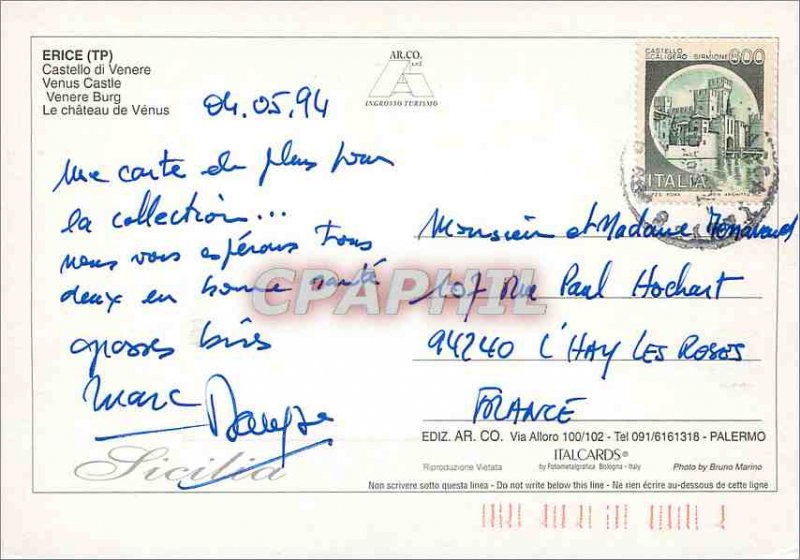 ERICE (TP)
Castello di Venere
Venus Castle
Venere Burg
Le château de Vénus
AR.CO.
s.r.l.
INGROSSO TURISMO
CASTELLO
SCALIGERO - SIRMIONE
600
ITALIA
04.05.94
une carte de plus pour
la collection...
nous vous espérons tous
deux en bonne santé
grosses bises
Marc
Monsieur et Madame
107 rue Paul Hochart
94240 L'HAY LES ROSES
FRANCE
CPAPHIL
EDIZ. AR. CO. Via Alloro 100/102 - Tel 091/6161318 - PALERMO
ITALCARDS®
by Fotometalgrafica Bologna - Italy
Riproduzione Vietata
Photo by Bruno Marino
Sicilia
Non scrivere sotto questa linea - Do not write below this line - Ne rien écrire au-dessous de cette ligne